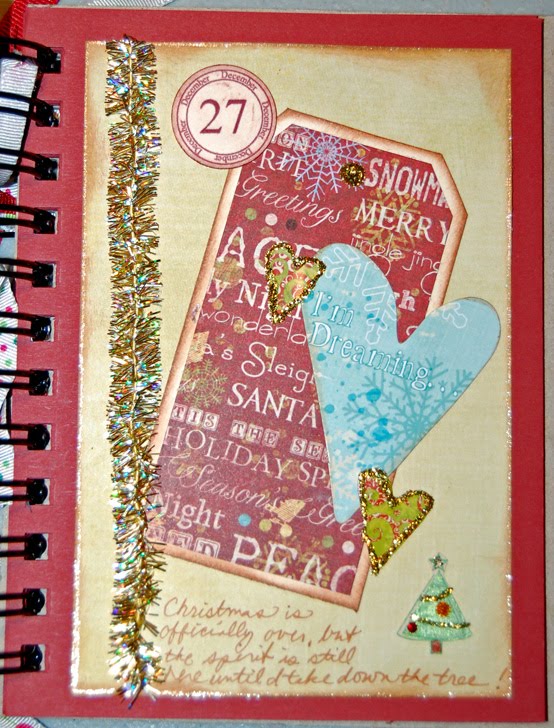 December December December December December December
27
ON
SNOWMA
Greetings MERRY
jingle jing
y Nig
I'm
wonderla
Dreaming...
as Sleigh
SANTA
TIS THE SE
HOLIDAY SP
Season's Gree
Night
PEAC
Christmas is
officially over, but
the spirit is still
here until I take down the tree!